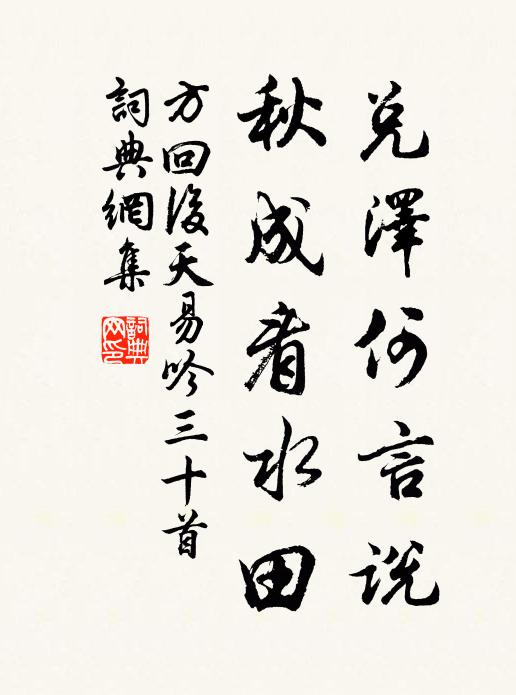 兑澤何言説
秋成看水田
方回後天易吟三十首
詞典網集
詞典网印